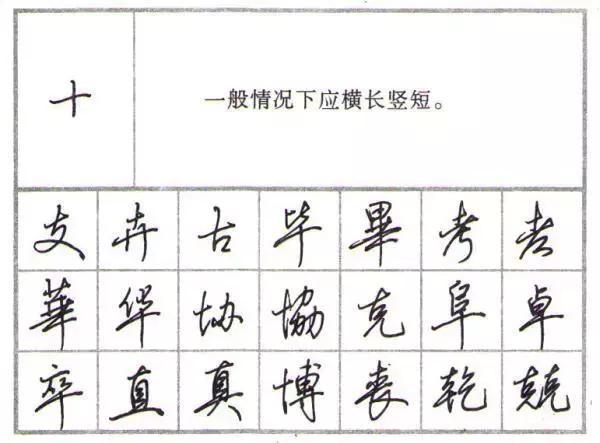 十 一般情况下应横长竖短。
支 卉 古 毕 畢 考 老
華 华 协 協 克 阜 卓
卒 直 真 博 丧 乾 兢